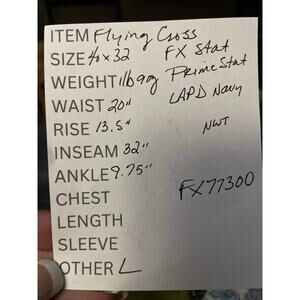 ITEM Flying Cross
SIZE 40x32 FX Stat
WEIGHT 1lb9oz PrimeStat
WAIST 20" LAPD Navy
RISE 13.5"
NWT
INSEAM 32"
ANKLE 9.75"
FX77300
CHEST
LENGTH
SLEEVE
OTHER L